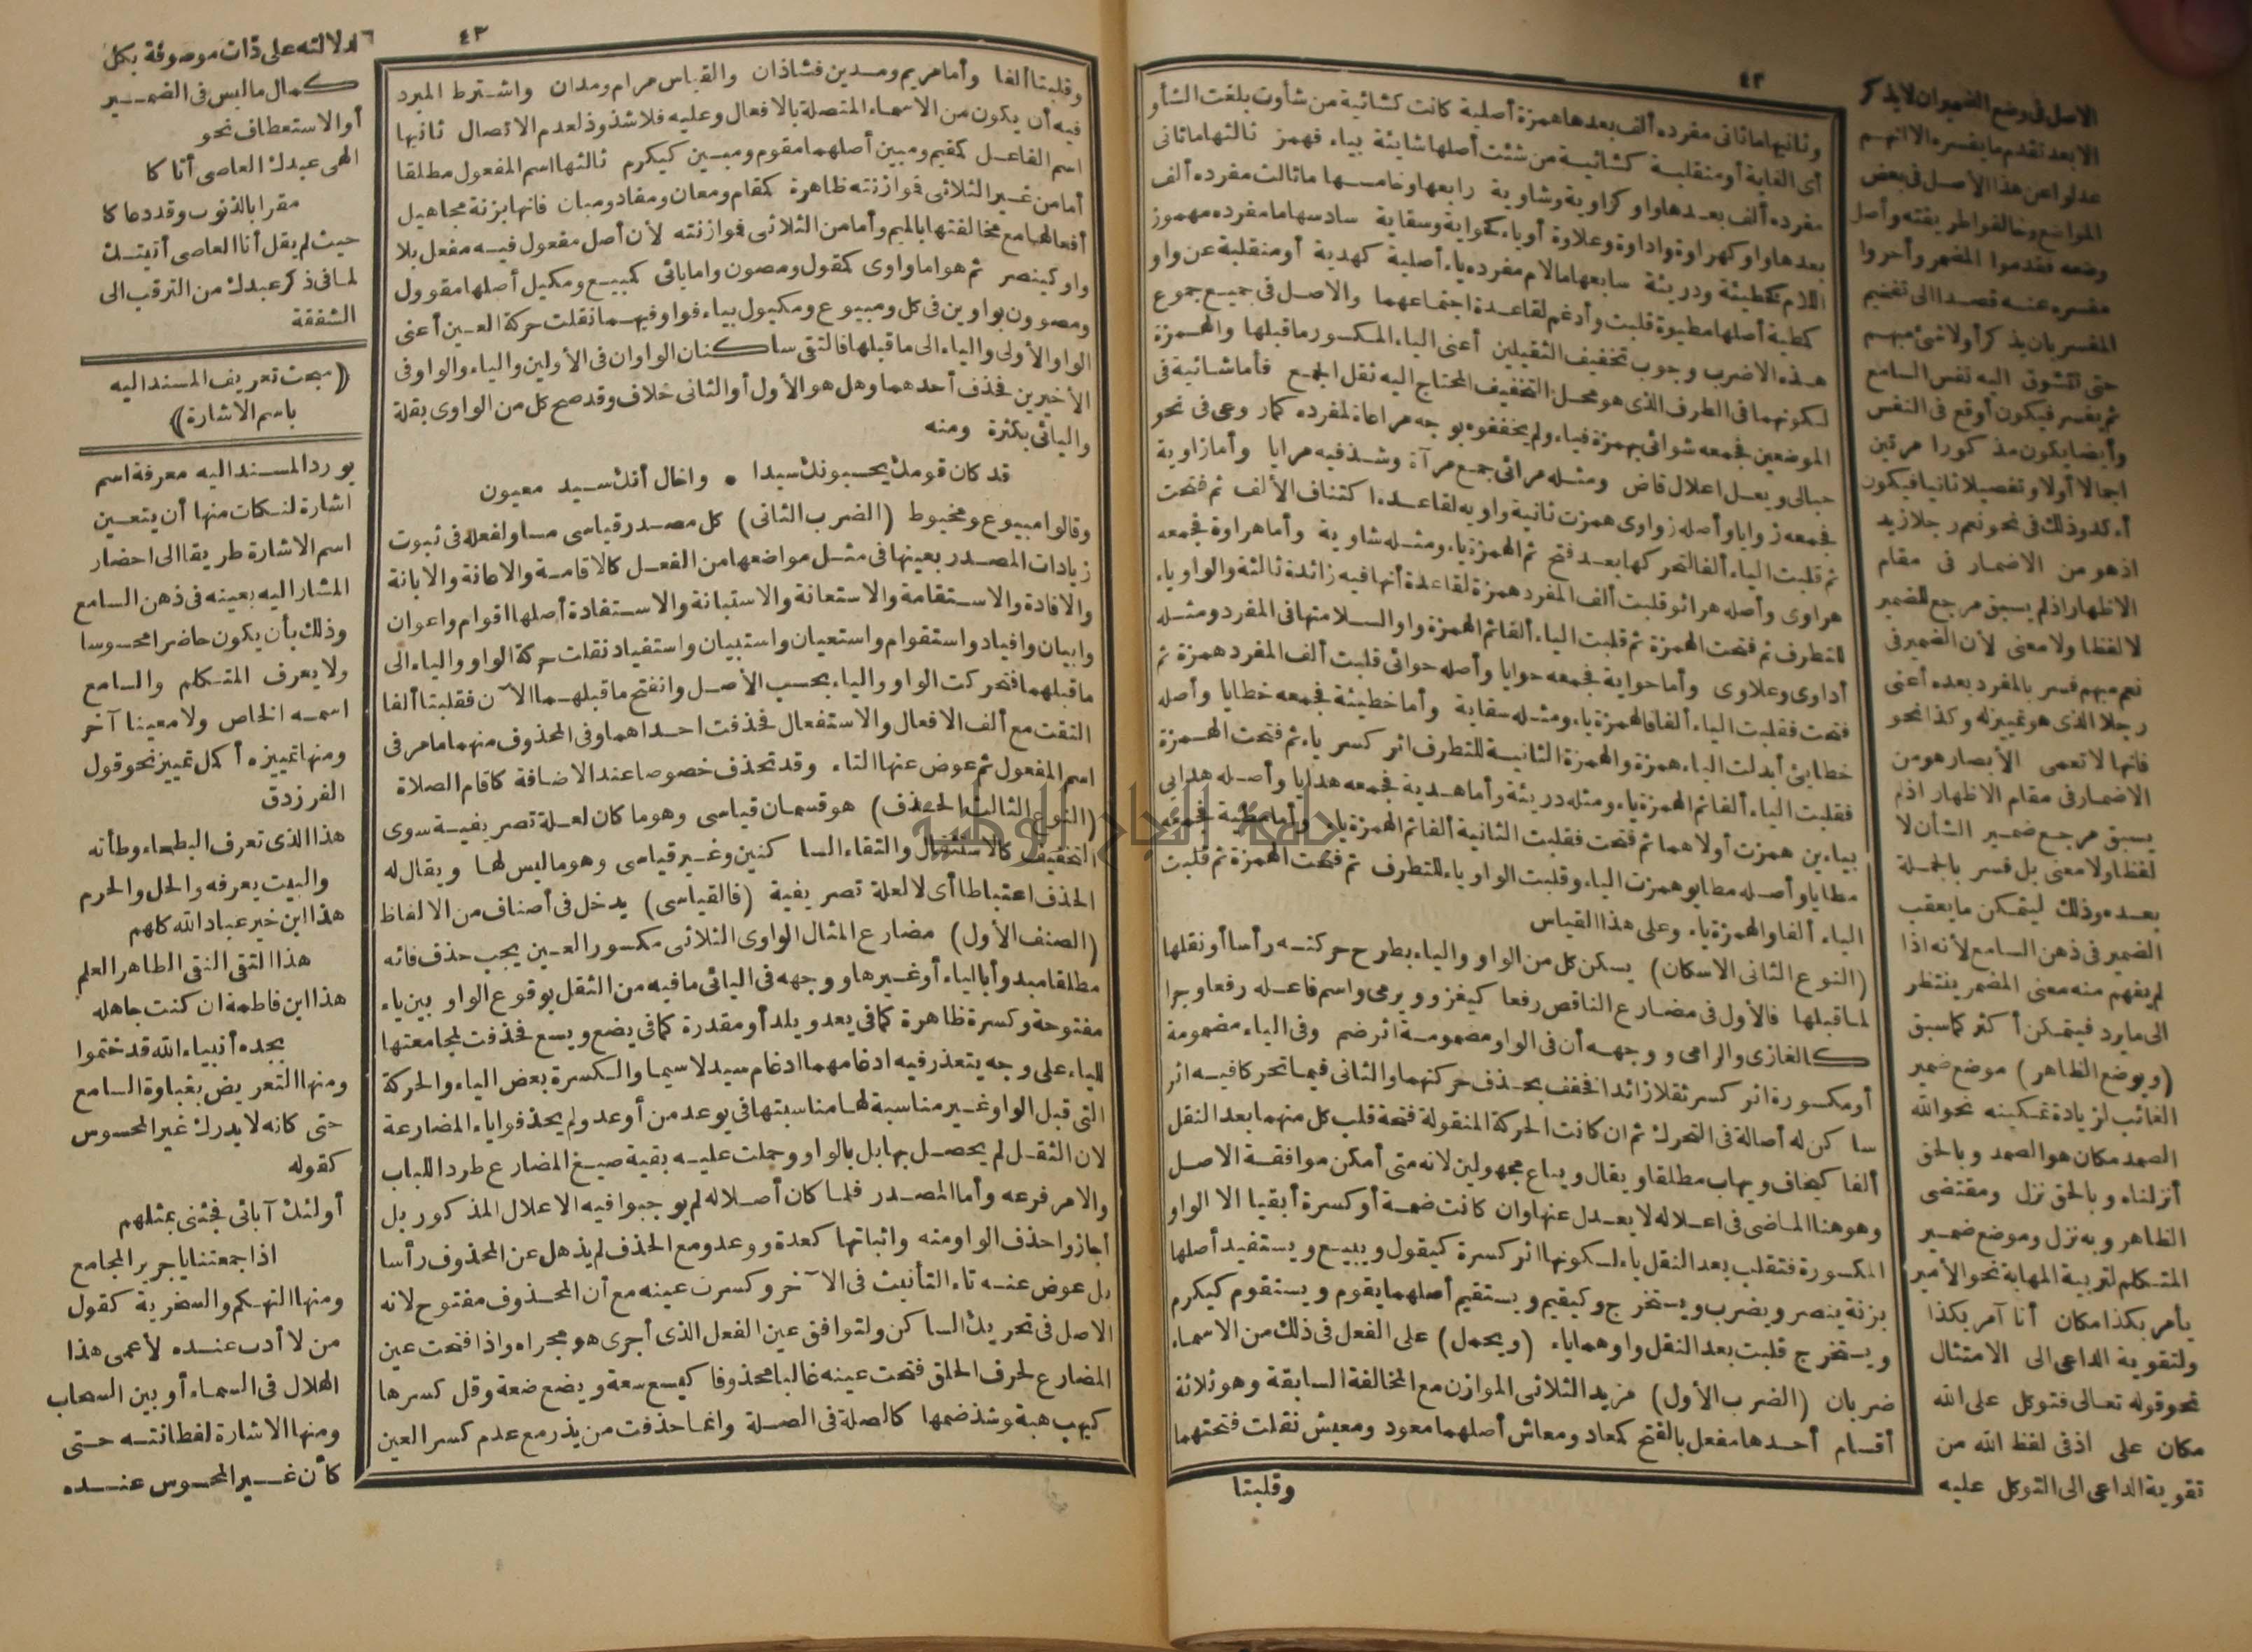 ٤٢
وثانيها ماثانى مفرده ألف بعدها همزة أصلية كانت كشائية من شأوت بلغت الشأو
أى الغاية أو منقلبة كشائية من شئت أصلها شايئة بياء فهمز ثالثها ماثانى
مفرده ألف بعدها واو كراوية وشاوية رابعها وخامسها ماثالث مفرده ألف
بعدها واو كهراوة واداوة وعلاوة أو ياء كحواية وسقاية سادسها ما مفرده مهموز
اللام كخطيئة ودريئة سابعها مالام مفرده ياء أصلية كهدية أو منقلبة عن واو
كمطية أصلها مطيوة قلبت وأدغم لقاعدة اجتماعهما والاصل فى جميع جموع
هذه الاضرب وجوب تخفيف الثقيلين أعنى الياء المكسور ماقبلها والهمزة
لكونهما فى الطرف الذى هو محل التخفيف المحتاج اليه ثقل الجمع فأما شائية فى
الموضعين فجمعه شوائى بهمزة فياء ولم يخففوه بوجه مراعاة لمفرده كما روعى فى نحو
حبالى ويعل اعلال قاض ومثله مرائى جمع مرآة وشذ فيه مرايا وأما زاوية
فجمعه زوايا وأصله زواوى همزت ثانية واويه لقاعدة اكتناف الألف ثم فتحت
ثم قلبت الياء ألفا لتحركها بعد فتح ثم الهمزة ياء ومثله شاوية وأما هراوة فجمعه
هراوى وأصله هرائو قلبت ألف المفرد همزة لقاعدة أنها فيه زائدة ثالثة والواو ياء
للتطرف ثم فتحت الهمزة ثم قلبت الياء ألفا ثم الهمزة واوا لسلامتها فى المفرد ومثله
أداوى وعلاوى وأما حواية فجمعه حوايا وأصله حوائى قلبت ألف المفرد همزة ثم
فتحت فقلبت الياء ألفا فالهمزة ياء ومثله سقاية وأما خطيئة فجمعه خطايا وأصله
خطايئ أبدلت الياء همزة والهمزة الثانية للتطرف اثر كسر ياء ثم فتحت الهمزة
فقلبت الياء ألفا ثم الهمزة ياء ومثله دريئة وأما هدية فجمعه هدايا وأصله هدايى
بياءين همزت أولاهما ثم فتحت فقلبت الثانية ألفا ثم الهمزة ياء وأما مطية فجمعه
مطايا وأصله مطايو همزت الياء وقلبت الواو ياء للتطرف ثم فتحت الهمزة ثم قلبت
الياء ألفا والهمزة ياء وعلى هذا القياس
(النوع الثانى الاسكان) يسكن كل من الواو والياء بطرح حركته رأسا أو نقلها
لما قبلها فالأول فى مضارع الناقص رفعا كيغزو ويرمى واسم فاعله رفعا وجرا
كالغازى والرامى ووجهه أن فى الواو مضمومة اثر ضم وفى الياء مضمومة
أو مكسورة اثر كسر ثقلا زائدا فخفف بحذف حركتهما والثانى فيما تحركا فيه اثر
ساكن له أصالة فى التحرك ثم ان كانت الحركة المنقولة فتحة قلب كل منهما بعد النقل
ألفا كيخاف ويهاب مطلقا ويقال ويباع مجهولين لانه متى أمكن موافقة الاصل
وهو هنا الماضى فى اعلاله لا يعدل عنها وان كانت ضمة أو كسرة أبقيا الا الواو
المكسورة فتقلب بعد النقل ياء لسكونها اثر كسرة كيقول ويبيع ويستفيد أصلها
بزنة ينصر ويضرب ويستخرج وكيقيم ويستقيم أصلهما يقوم ويستقوم كيكرم
ويستخرج قلبت بعد النقل واوهما ياء (ويحمل) على الفعل فى ذلك من الاسماء
ضربان (الضرب الأول) مزيد الثلاثى الموازن مع المخالفة السابقة وهو ثلاثة
أقسام أحدها مفعل بالفتح كمعاد ومعاش أصلهما معود ومعيش نقلت فتحتهما
وقلبتا
الاصل فى وضع الضمير ان لا يذكر
الا بعد تقدم ما يفسره الا انهم
عدلوا عن هذا الأصل فى بعض
المواضع وخالفوا طريقته وأصل
وضعه فقدموا المضمر وأخروا
مفسره عنه قصدا الى تفخيم
المفسر بان يذكر أولا شئ مبهم
حتى تتشوق اليه نفس السامع
ثم يفسر فيكون أوقع فى النفس
وأيضا يكون مذكورا مرتين
اجمالا أولا وتفصيلا ثانيا فيكون
أكد وذلك فى نحو نعم رجلا زيد
اذ هو من الاضمار فى مقام
الاظهار اذ لم يسبق مرجع للضمير
لا لفظا ولا معنى لأن الضمير فى
نعم مبهم فسر بالمفرد بعده أعنى
رجلا الذى هو تمييز له وكذا نحو
فانها لا تعمى الأبصار هو من
الاضمار فى مقام الاظهار اذ لم
يسبق مرجع ضمير الشأن لا
لفظا ولا معنى بل فسر بالجملة
بعده وذلك ليتمكن ما يعقب
الضمير فى ذهن السامع لأنه اذا
لم يفهم منه معنى المضمر ينتظر
الى ما يرد فيتمكن أكثر كما سبق
(ويوضع الظاهر) موضع ضمير
الغائب لزيادة تمكينه نحو الله
الصمد مكان هو الصمد وبالحق
أنزلناه وبالحق نزل ومقتضى
الظاهر وبه نزل وموضع ضمير
المتكلم لتربية المهابة نحو الأمير
يأمر بكذا مكان أنا آمر بكذا
ولتقوية الداعى الى الامتثال
نحو قوله تعالى فتوكل على الله
مكان على اذ فى لفظ الله من
تقوية الداعى الى التوكل عليه
٤٣
وقلبتا ألفا وأما مريم ومدين فشاذان والقياس مرام ومدان واشترط المبرد
فيه أن يكون من الاسماء المتصلة بالافعال وعليه فلا شذوذ لعدم الاتصال ثانيها
اسم الفاعل كمقيم ومبين أصلهما مقوم ومبين كيكرم ثالثها اسم المفعول مطلقا
أما من غير الثلاثى فموازنته ظاهرة كمقام ومعان ومفاد ومبان فانها بزنة مجاهيل
أفعالها مع مخالفتها بالميم وأما من الثلاثى فموازنته لأن أصل مفعول فيه مفعل بلا
واو كينصر ثم هو اما واوى كمقول ومصون واما يائى كمبيع ومكيل أصلها مقوول
ومصوون بواوين فى كل ومبيوع ومكيول بياء فواو فيهما نقلت حركة العين أعنى
الواو الأولى والياء الى ما قبلها فالتقى ساكنان الواوان فى الأولين والياء والواو فى
الأخيرين فحذف أحدهما وهل هو الأول أو الثانى خلاف وقد صح كل من الواوى بقلة
واليائى بكثرة ومنه
قد كان قومك يحسبونك سيدا • واخال أنك سيد معيون
وقالوا مبيوع ومخيوط (الضرب الثانى) كل مصدر قياسى مساو لفعله فى ثبوت
زيادات المصدر بعينها فى مثل مواضعها من الفعل كالاقامة والاعانة والابانة
والافادة والاستقامة والاستعانة والاستبانة والاستفادة أصلها اقوام واعوان
وابيان وافياد واستقوام واستعيان واستبيان واستفياد نقلت حركة الواو والياء الى
ما قبلهما فتحركت الواو والياء بحسب الأصل وانفتح ما قبلهما الآن فقلبتا ألفا
التقت مع ألف الافعال والاستفعال فحذفت احداهما وفى المحذوف منهما ما مر فى
اسم المفعول ثم عوض عنها التاء وقد تحذف خصوصا عند الاضافة كاقام الصلاة
(النوع الثالث الحذف) هو قسمان قياسى وهو ما كان لعلة تصريفية سوى
التخفيف كالاستثقال والتقاء الساكنين وغير قياسى وهو ما ليس لها ويقال له
الحذف اعتباطا أى لا لعلة تصريفية (فالقياسى) يدخل فى أصناف من الالفاظ
(الصنف الأول) مضارع المثال الواوى الثلاثى مكسور العين يجب حذف فائه
مطلقا مبدوأ بالياء أو غيرها ووجهه فى اليائى ما فيه من الثقل بوقوع الواو بين ياء
مفتوحة وكسرة ظاهرة كما فى يعد ويلد أو مقدرة كما فى يضع ويسع فحذفت لمجامعتها
للياء على وجه يتعذر فيه ادغامهما ادغام سيد لا سيما والكسرة بعض الياء والحركة
التى قبل الواو غير مناسبة لها مناسبتها فى يوعد من أوعد ولم يحذفوا ياء المضارعة
لان الثقل لم يحصل بها بل بالواو وحملت عليه بقية صيغ المضارع طردا للباب
والامر فرعه وأما المصدر فلما كان أصلا له لم يوجبوا فيه الاعلال المذكور بل
أجازوا حذف الواو منه واثباتها كعدة ووعد ومع الحذف لم يذهل عن المحذوف رأسا
بل عوض عنه تاء التأنيث فى الآخر وكسرت عينه مع أن المحذوف مفتوح لانه
الاصل فى تحريك الساكن ولتوافق عين الفعل الذى أجرى هو مجراه واذا فتحت عين
المضارع لحرف الحلق فتحت عينه غالبا محذوفا كيسع سعة ويضع ضعة وقل كسرها
كيهب هبة وشذ ضمها كالصلة فى الصلة وانما حذفت من يذر مع عدم كسر العين
لدلالته على ذات موصوفة بكل
كمال ما ليس فى الضمير
أو الاستعطاف نحو
الهى عبدك العاصى أتاكا
مقرا بالذنوب وقد دعاكا
حيث لم يقل أنا العاصى أتيتك
لما فى ذكر عبدك من الترقب الى
الشفقة
(مبحث تعريف المسند اليه
باسم الاشارة)
يورد المسند اليه معرفة اسم
اشارة لنكات منها أن يتعين
اسم الاشارة طريقا الى احضار
المشار اليه بعينه فى ذهن السامع
وذلك بأن يكون حاضرا محسوسا
ولا يعرف المتكلم والسامع
اسمه الخاص ولا معينا آخر
ومنها تمييزه أكمل تمييز نحو قول
الفرزدق
هذا الذى تعرف البطحاء وطأته
والبيت يعرفه والحل والحرم
هذا ابن خير عباد الله كلهم
هذا التقى النقى الطاهر العلم
هذا ابن فاطمة ان كنت جاهله
بجده أنبياء الله قد ختموا
ومنها التعريض بغباوة السامع
حتى كانه لا يدرك غير المحسوس
كقوله
أولئك آبائى فجئنى بمثلهم
اذا جمعتنا يا جرير المجامع
ومنها التهكم والسخرية كقول
من لا أدب عنده لأعمى هذا
الهلال فى السماء أو بين السحاب
ومنها الاشارة لفطانته حتى
كأن غير المحسوس عنده